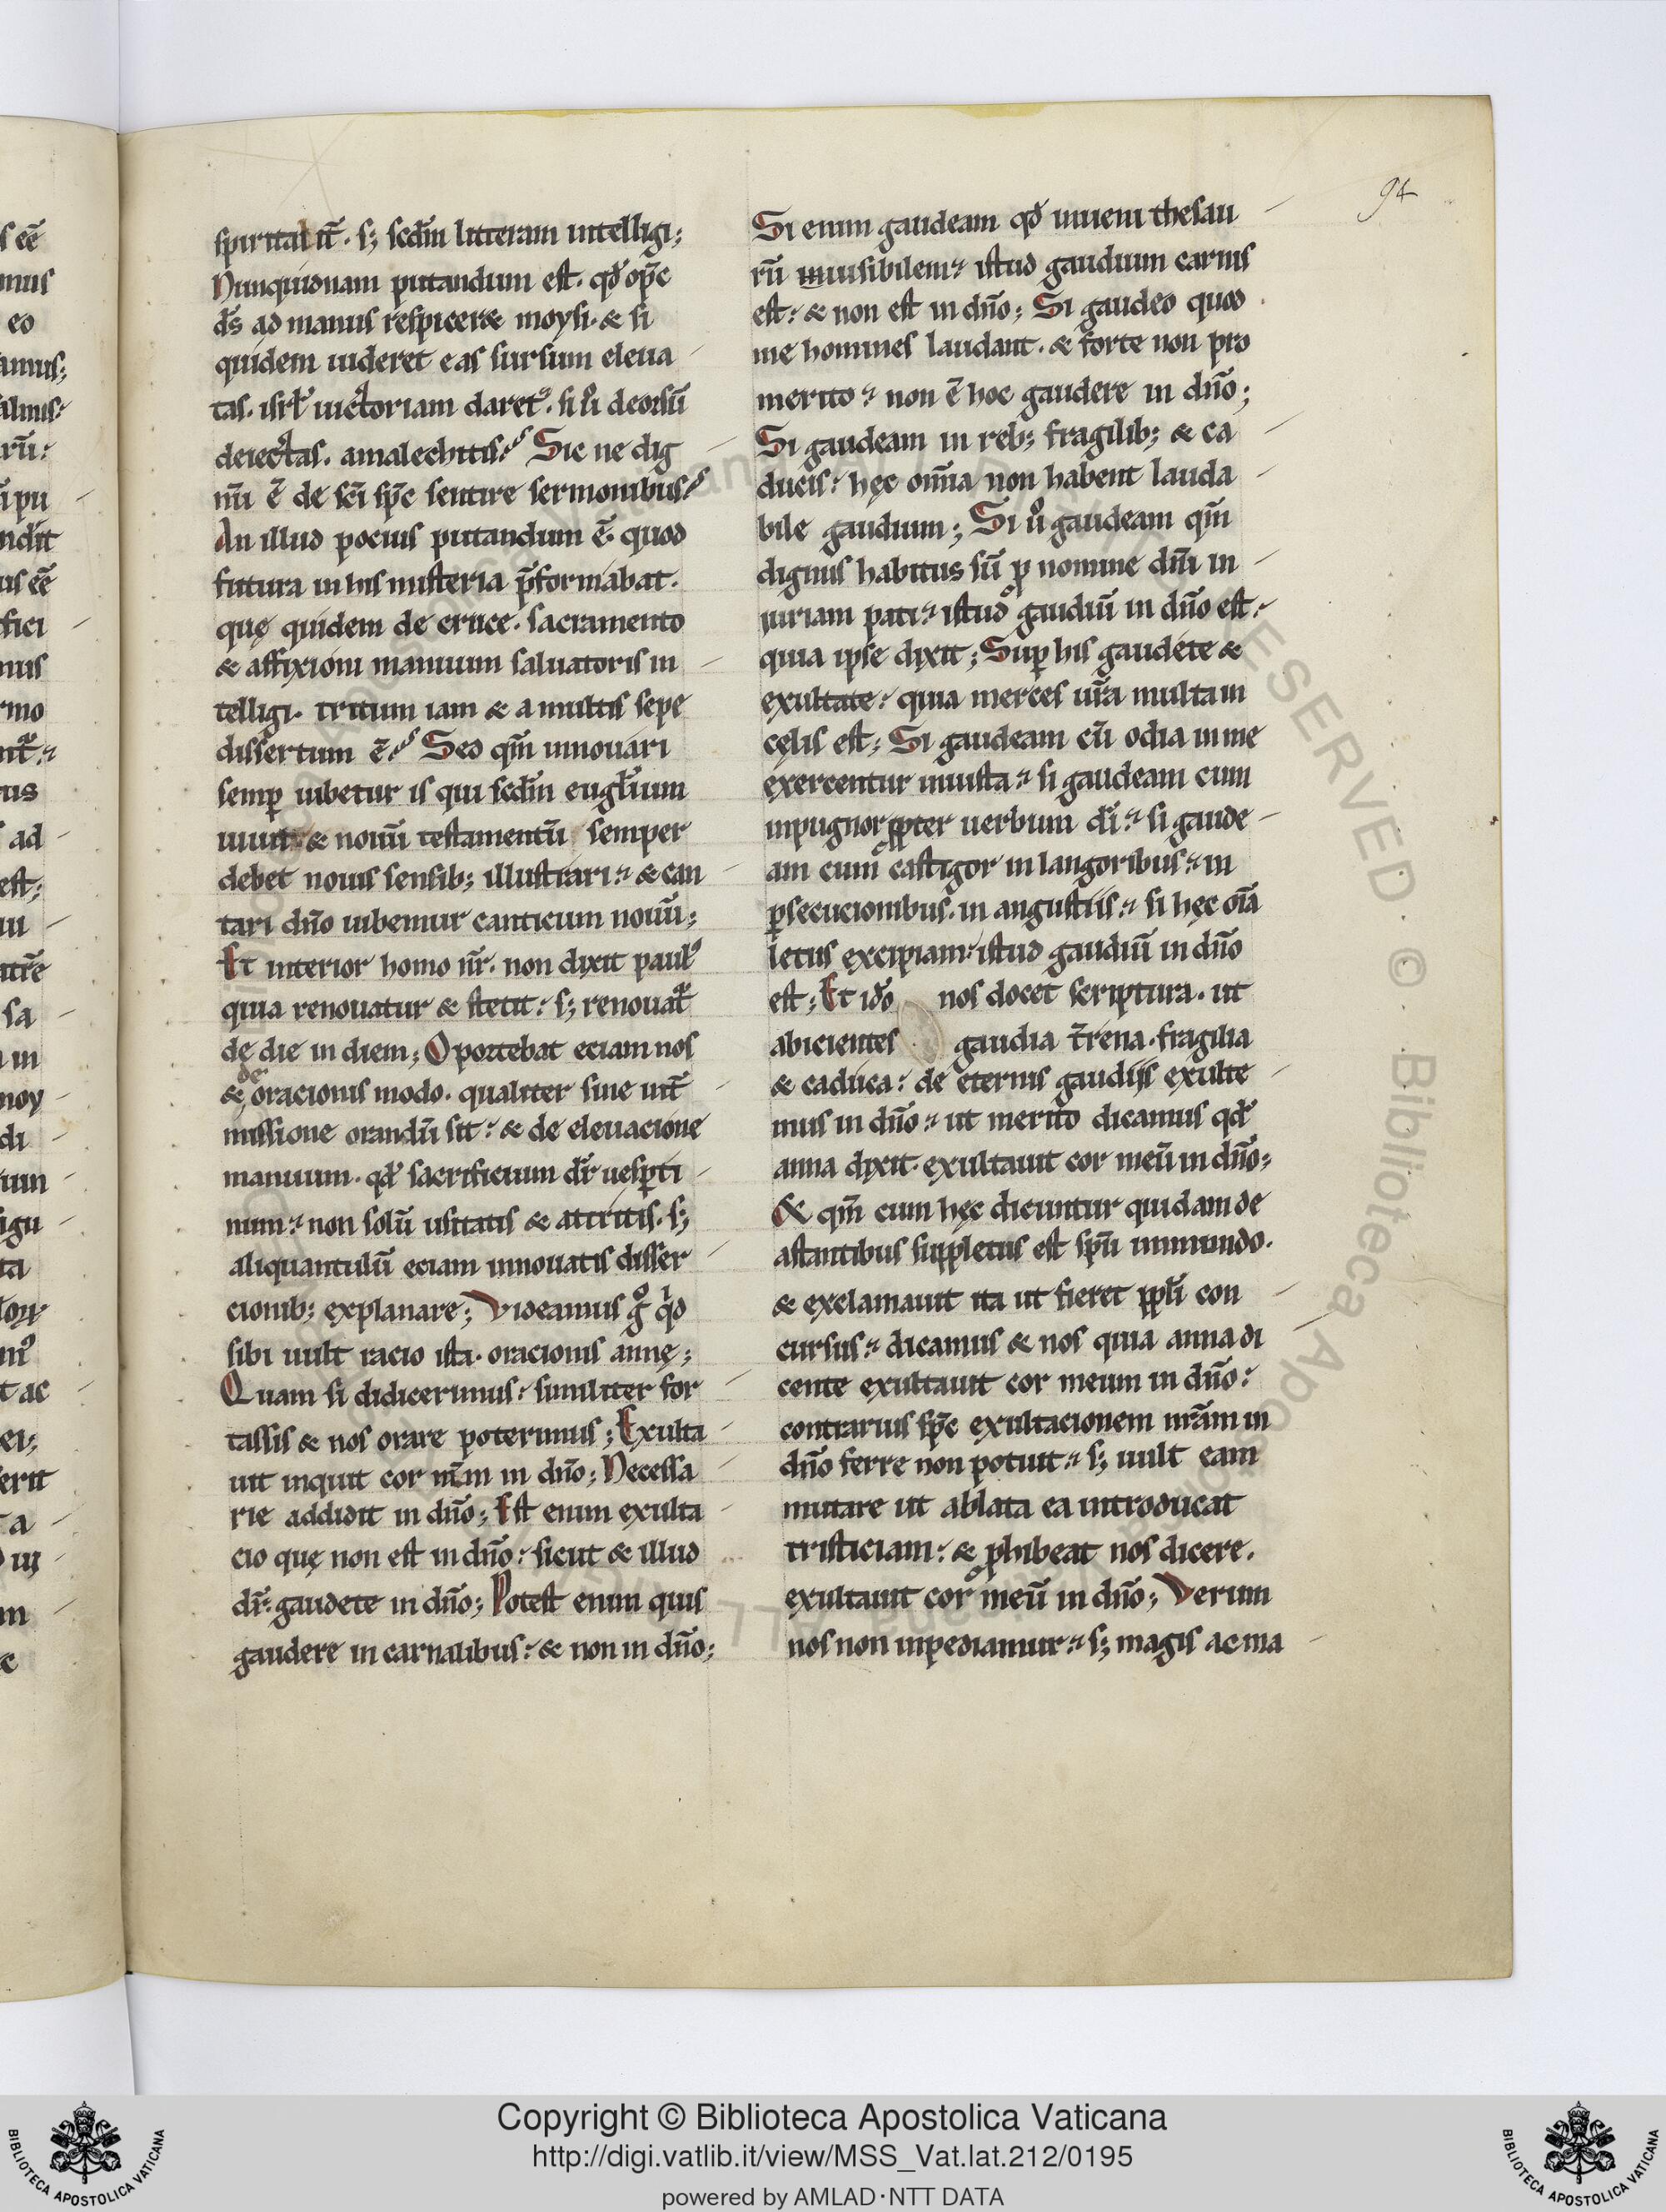 94
spiritalit̄. s; scd̄m litteram intelligi;
Nunquidnam putandum est. qd̓ op̄c
d̄s ad manus respiceret moysi. & si
quidem uideret eas sursum eleua
tas. isrl̓ uictoriam daret᷒. si u̓ deorsū
deiectas. amalechitis? Sic ne dig
nū ē de sc̄i sp̄c sentire sermonibus?
An illud pocius putandum ē. quod
futura in his misteria p̄formabat.
quę quidem de cruce. sacramento
& affixioni manuum saluatoris in
telligi. tritum iam & a multis sepe
dissertum ē? Sed qm̄ innouari
semp̱ iubetur is qui scd̄m eugl̄ium
uiuit & nouū testamentū semper
debet nouis sensib; illustrari. & can
tari dn̄o iubemur canticum nouū;
Et interior homo nr̄. non dixit paul᷒
quia renouatur & stetit: s; renouat᷑
de die in diem; Oportebat eciam nos
& de oracionis modo. qualiter sine int̄
missione orandū sit: & de eleuacione
manuum. qd̓ sacrificium dr̄ uesp̱ti
num: non solū usitatis & attritis. s;
aliquantulū eciam innouatis disser
cionib; explanare; Videamus gͦ qͥd
sibi uult racio ista. oracionis annę;
Quam si didicerimus: similiter for
tassis & nos orare poterimus; Exulta
uit inquit cor m̄m in dn̄o; Necessa
rie addidit in dn̄o; Est enim exulta
cio quę non est in dn̄o: sicut & illud
dr̄: gaudete in dn̄o; Potest enim quis
gaudere in carnalibus: & non in dn̄o;
Si enim gaudeam qd̓ inueni thesau
rū inuisibilem: istud gaudium carnis
est: & non est in dn̄o; Si gaudeo quod
me homines laudant. & forte non pro
merito: non ē hoc gaudere in dn̄o;
Si gaudeam in reb; fragilib; & ca
ducis: hęc om̄ia non habent lauda
bile gaudium; Si u̓ gaudeam qm̄
dignus habitus sū p nomine dn̄i in
iuriam pati: istud gaudiū in dn̄o est:
quia ipse dixit; Sup̱ his gaudete &
exultate: quia merces ur̄a multa in
cęlis est; Si gaudeam cū odia in me
exercentur iniusta: si gaudeam cum
inpugnor ppter uerbum dī: si gaude
am cum castigor in langoribus: in
p̱secucionibus. in angustiis: si hęc oīa
letus excipiam: istud gaudiū in dn̄o
est; Et id̓o nos docet scriptura. ut
abicientes gaudia t̄rena. fragilia
& caduca: de eternis gaudiis exulte
mus in dn̄o: ut merito dicamus qd̓
anna dixit. exultauit cor meū in dn̄o;
& qm̄ cum hęc dicuntur quidam de
astantibus suppletus est sp̄u inmundo.
& exclamauit ita ut fieret ppl̓i con
cursus: dicamus & nos quia anna di
cente exultauit cor meum in dn̄o:
contrarius sp̄c exultacionem nr̄am in
dn̄o ferre non potuit: s; uult eam
mutare ut ablata ea introducat
tristiciam: & phibeat nos dicere.
exultauit cor meū in dn̄o; Verum
nos non inpediamur: s; magis ac ma
Copyright © Biblioteca Apostolica Vaticana
http://digi.vatlib.it/view/MSS_Vat.lat.212/0195
powered by AMLAD·NTT DATA
BIBLIOTECA APOSTOLICA VATICANA
BIBLIOTECA APOSTOLICA VATICANA